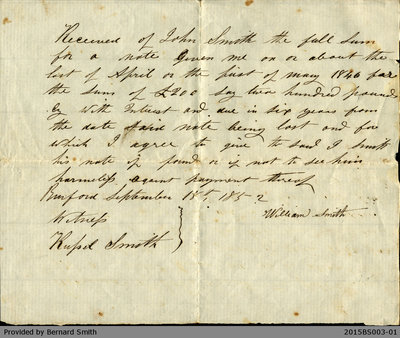 Received of John Smith the full sum
for a note Given me on or about the
last of April or the first of may 1846 for
the sum of £200 say two hundred pounds
Cy with Interest and due in six years from
the date said note being lost and for
which I agree to give to said J Smith
his note if found or if not to see him
harmless against payment thereof
Burford September 18, 1852
William Smith
Witness
Russel Smith
Provided by Bernard Smith
2015BS003-01